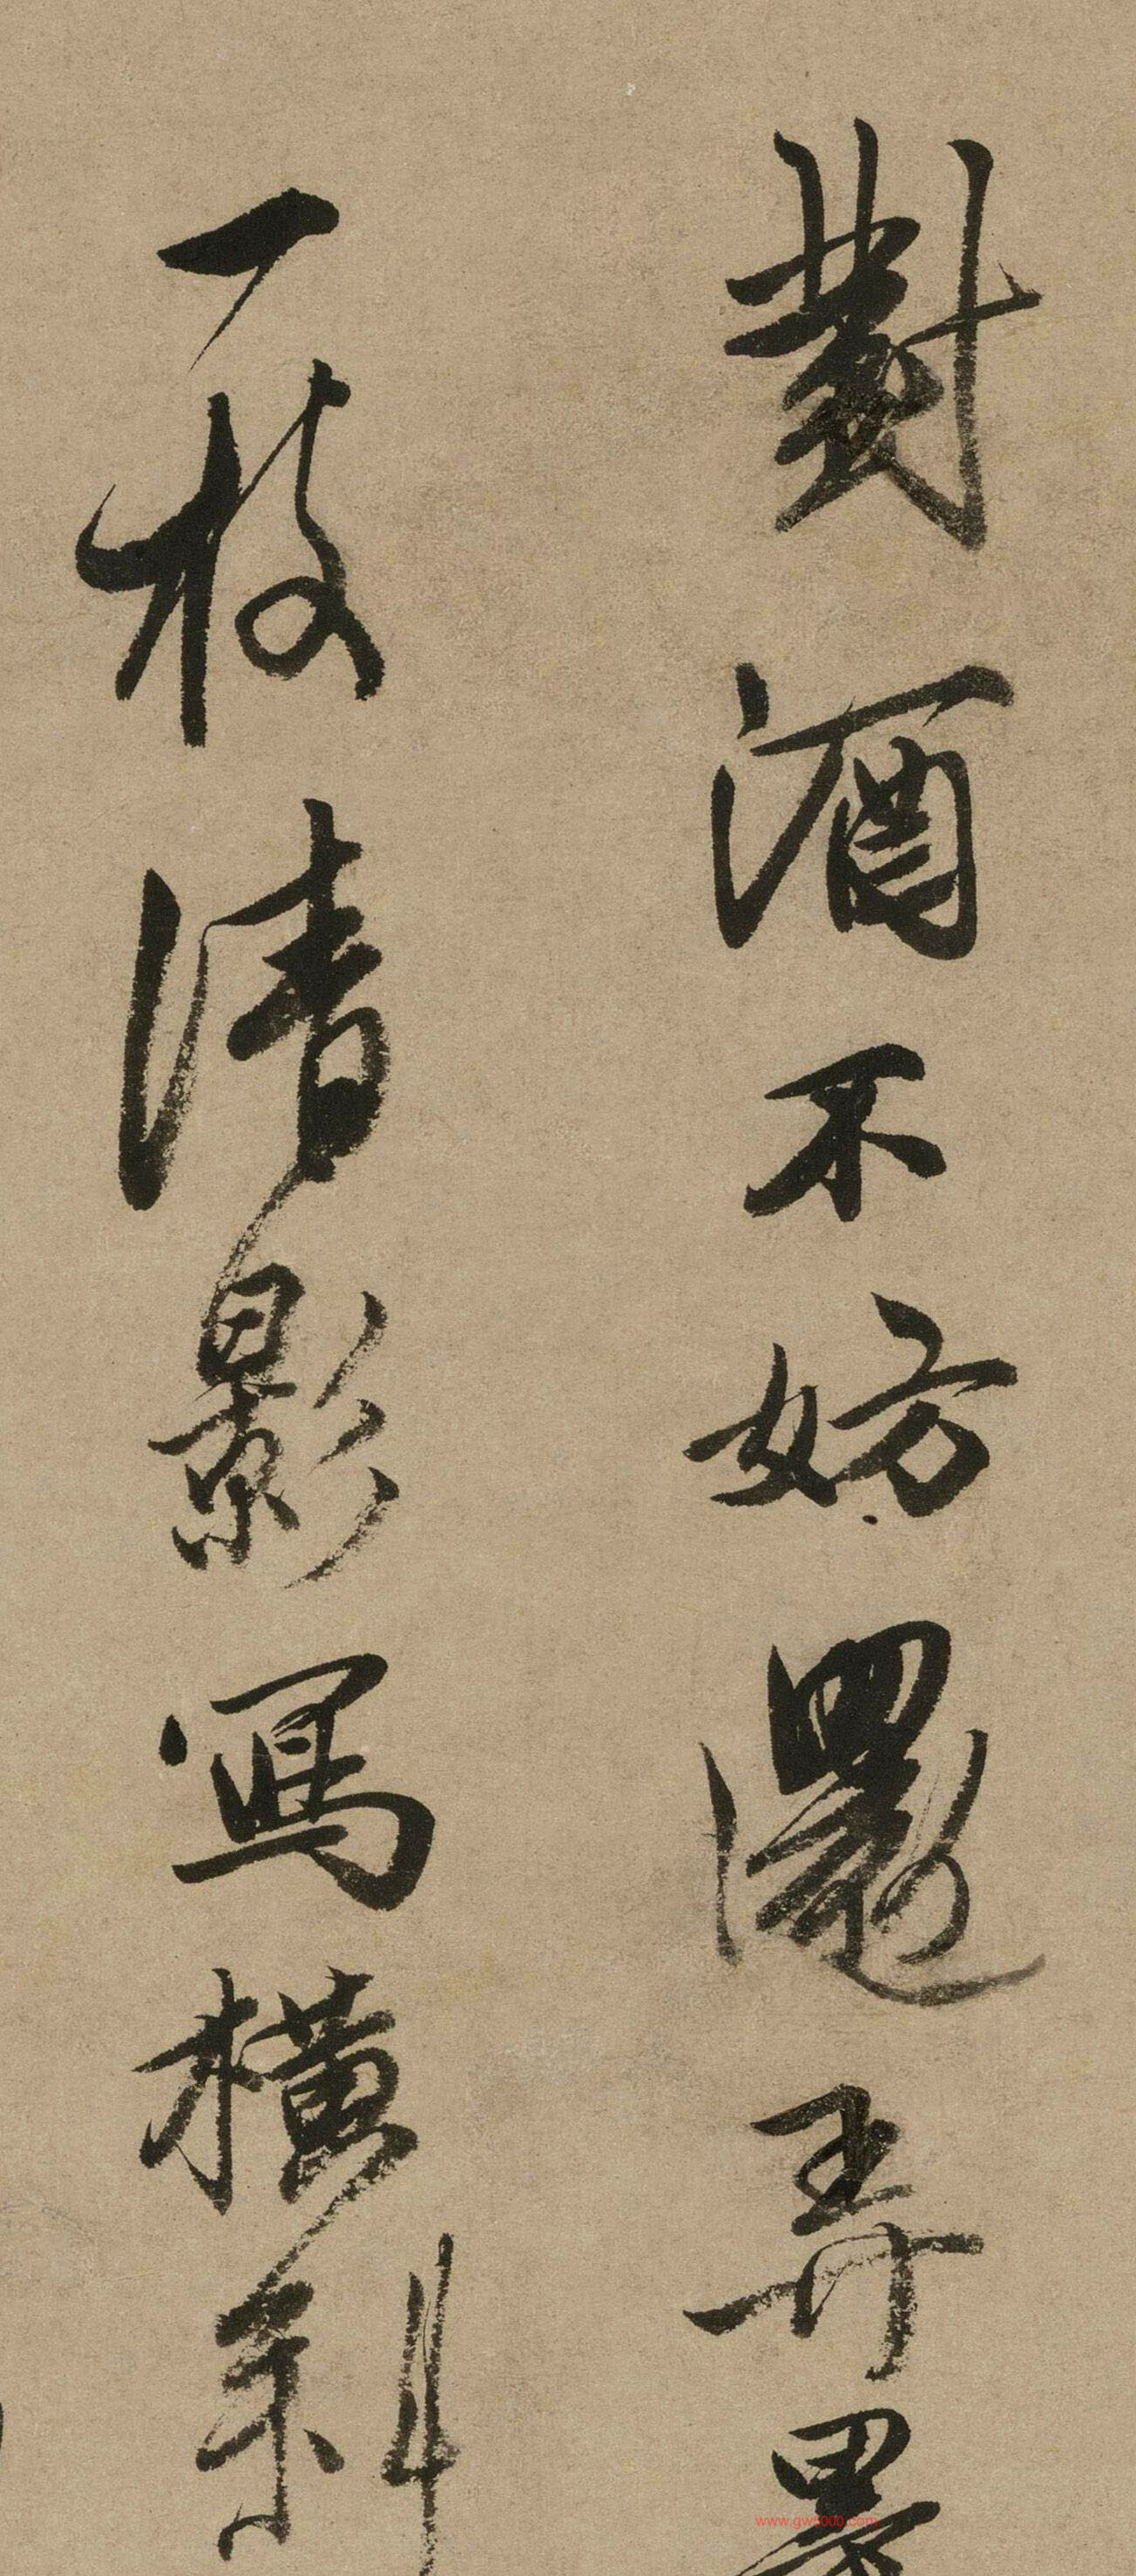 對酒不妨還弄墨
一枝清影寫橫斜
www.gw5000.com